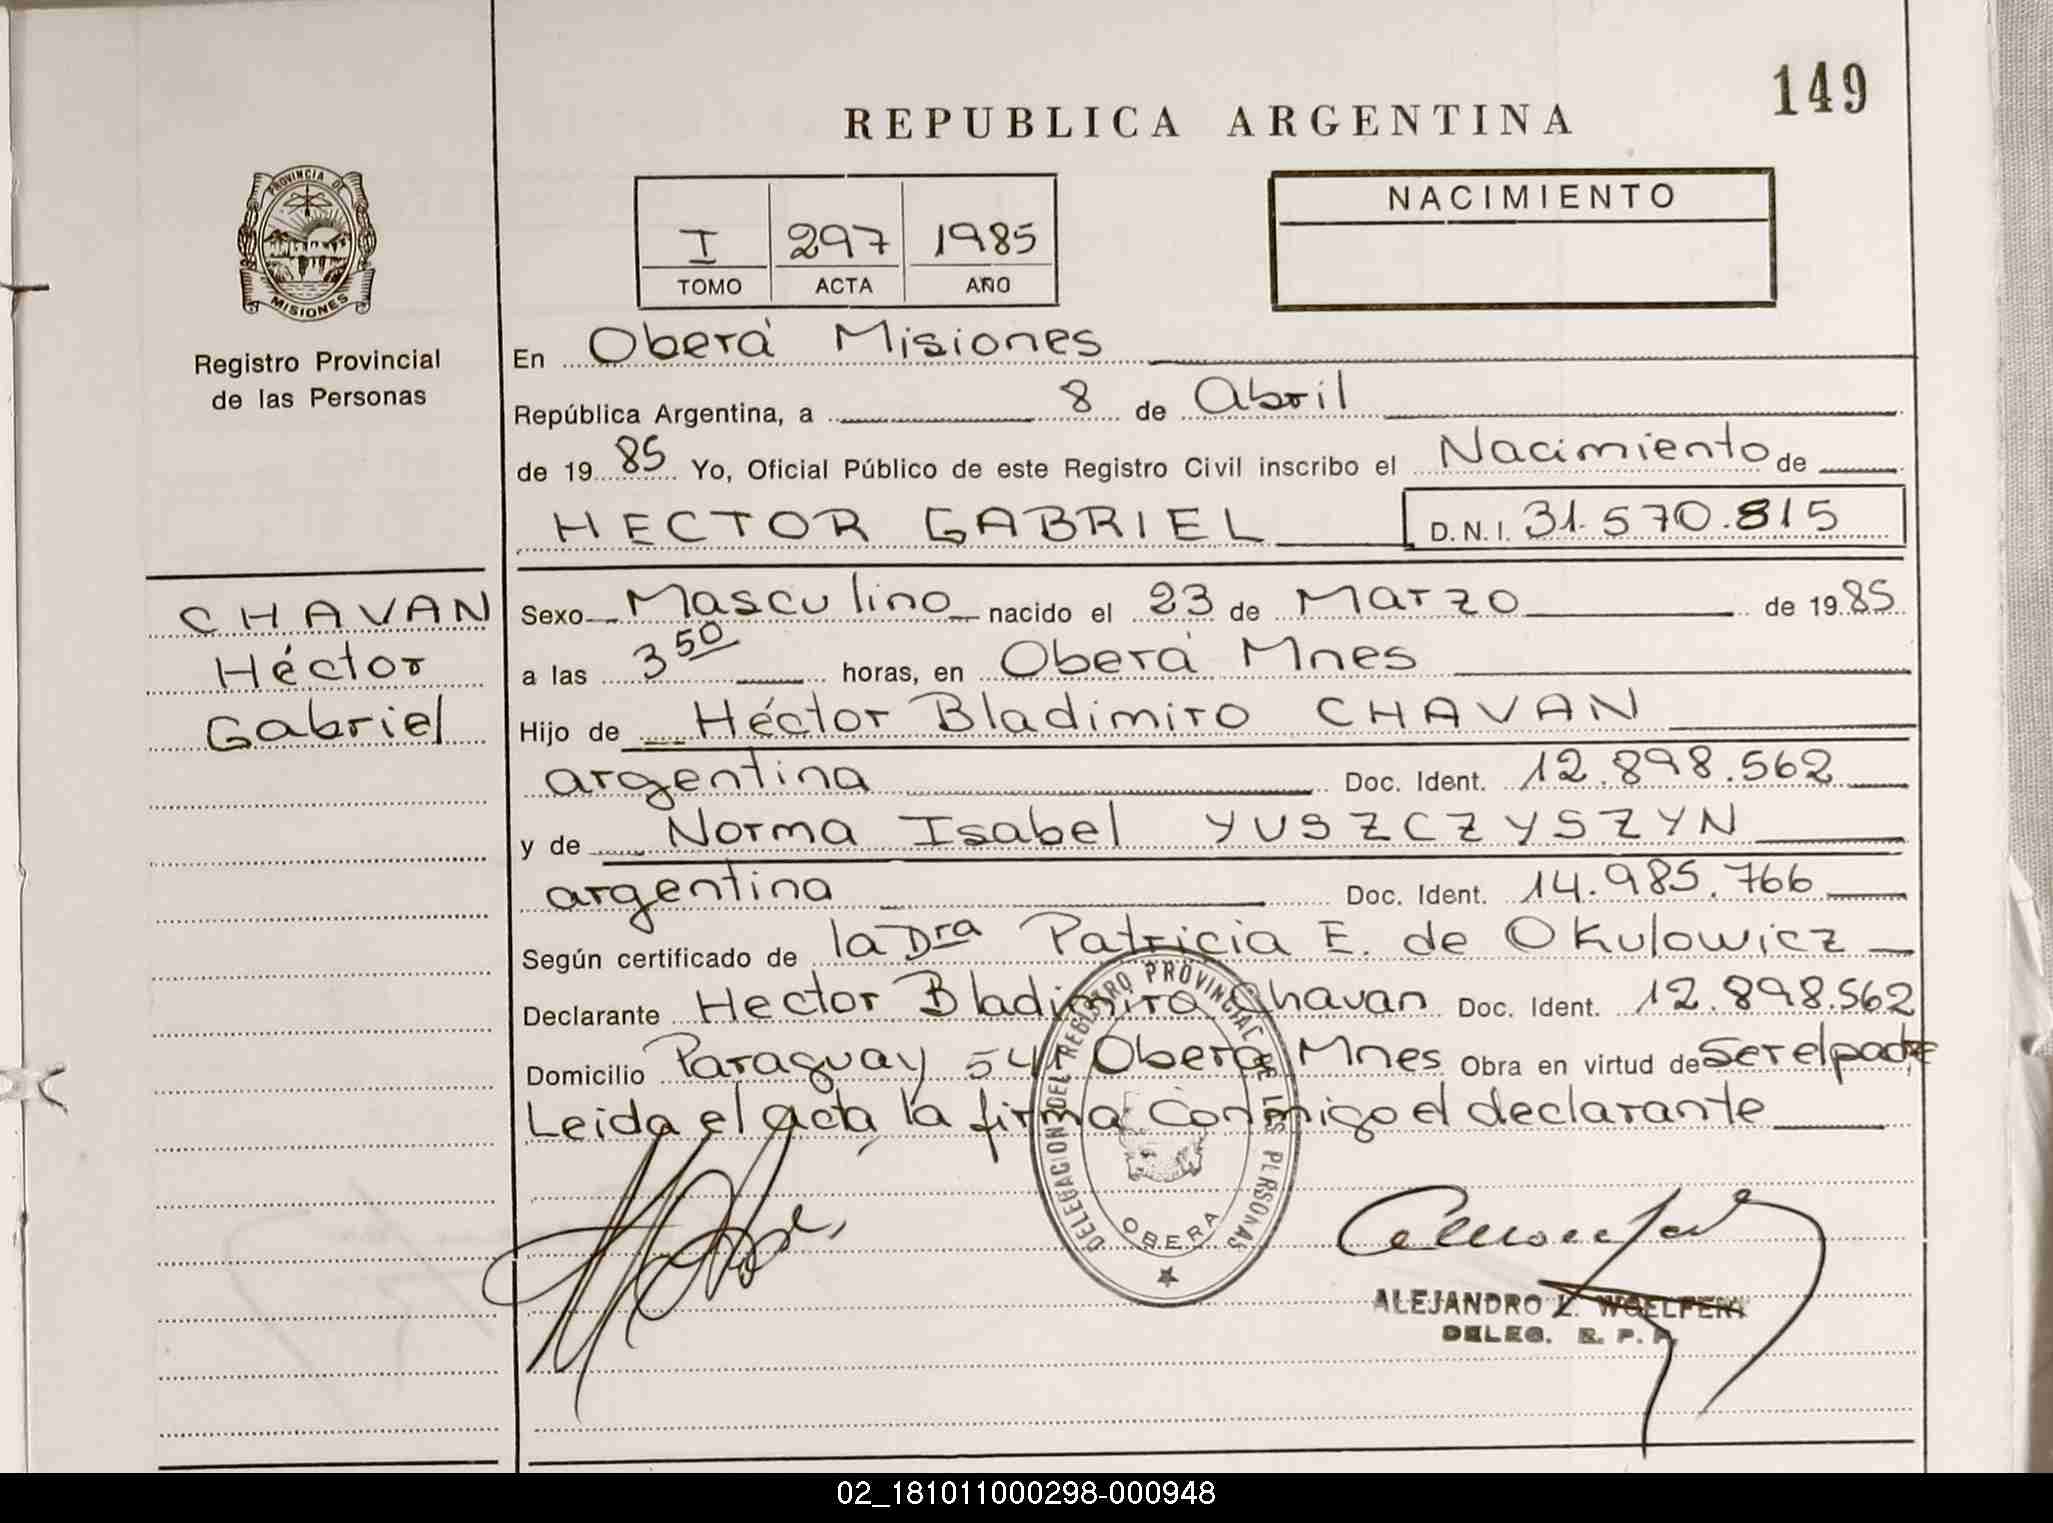 149
REPUBLICA ARGENTINA
PROVINCIA DE
MISIONES
Registro Provincial
de las Personas
I 297 1985
TOMO ACTA AÑO
NACIMIENTO
En Oberá Misiones
República Argentina, a 8 de Abril
de 1985 Yo, Oficial Público de este Registro Civil inscribo el Nacimiento de
HECTOR GABRIEL D.N.I. 31.570.815
CHAVAN
Héctor
Gabriel
Sexo Masculino nacido el 23 de Marzo de 1985
a las 3 50 horas, en Oberá Mnes
Hijo de Héctor Bladimiro CHAVAN
argentina Doc. Ident. 12.898.562
y de Norma Isabel YUSZCZYSZYN
argentina Doc. Ident. 14.985.766
Según certificado de la Dra Patricia E. de Okulowicz
Declarante Hector Bladimiro Chavan Doc. Ident. 12.898.562
Domicilio Paraguay 541 Oberá Mnes Obra en virtud de Ser el padre
Leida el acta, la firma conmigo el declarante
DELEGACION DEL REGISTRO PROVINCIAL DE LAS PERSONAS
OBERA
ALEJANDRO L.
DELEG. R. P. P.
02_181011000298-000948